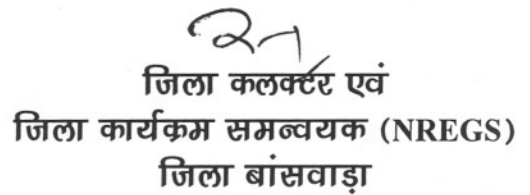 जिला कलक्टर एवं
जिला कार्यक्रम समन्वयक (NREGS)
जिला बांसवाड़ा